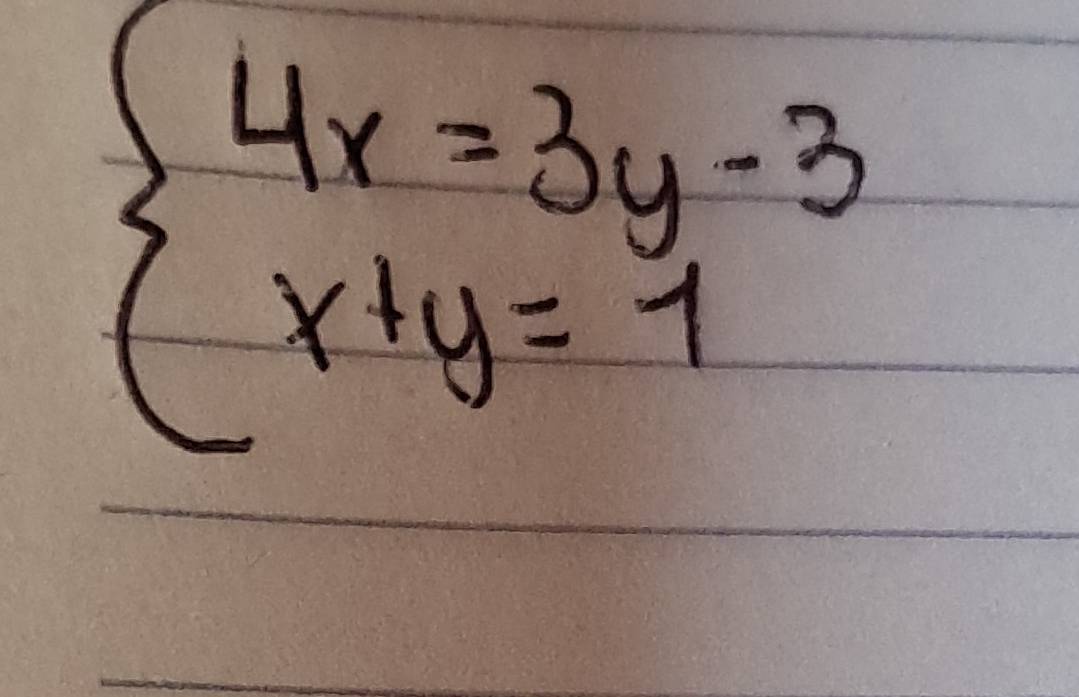 4x = 3y - 3
x + y = 1